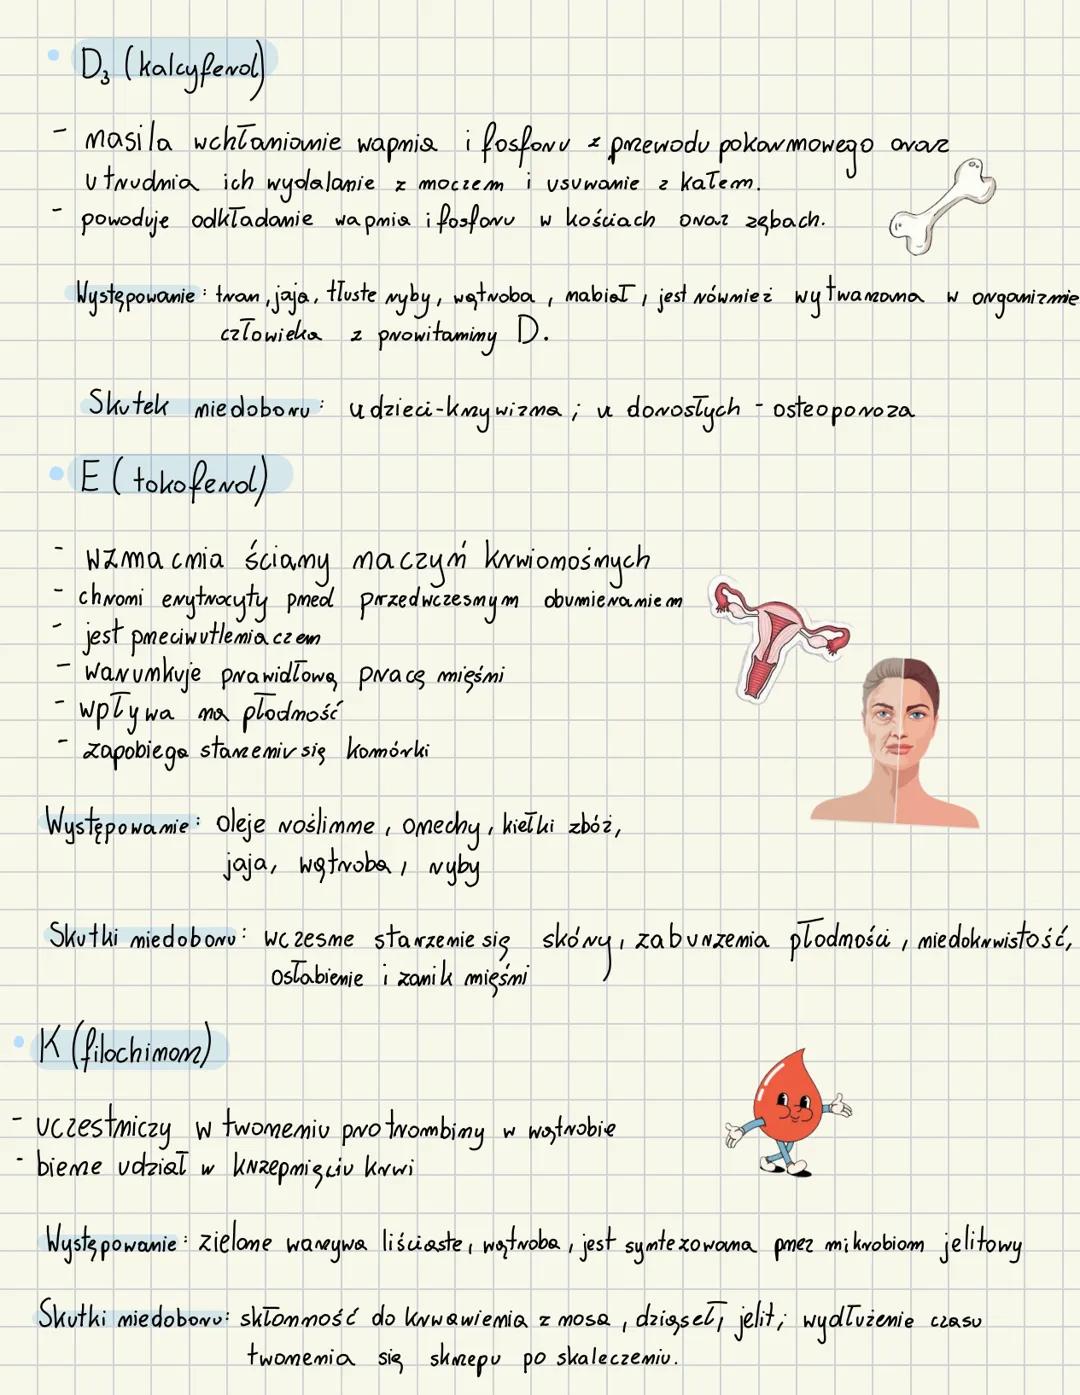 D₃ (kalcyferol)
- nasila wchłanianie wapnia i fosforu z przewodu pokarmowego oraz
utrudnia ich wydalanie z moczem i usuwanie z kałem.
- powoduje odkładanie wapnia i fosforu w kościach oraz zębach.
Występowanie: tran, jaja, tłuste ryby, wątroba, nabiał, jest również wytwarzana w organizmie
człowieka z prowitaminy D.
Skutek niedoboru: u dzieci - krzywizna; u dorosłych - osteoporoza
E (tokoferol)
- wzmacnia ściany naczyń krwionośnych
- chroni erytrocyty przed przedwczesnym obumieraniem
- jest przeciwutleniaczem
- warunkuje prawidłową pracę mięśni
- wpływa na płodność
- zapobiega starzeniu się komórki
Występowanie: oleje roślinne, orzechy, kiełki zbóż,
jaja, wątroba, ryby
Skutki niedoboru: wczesne starzenie się skóry, zaburzenia płodności, niedokrwistość,
osłabienie i zanik mięśni
K (filochinon)
- uczestniczy w tworzeniu protrombiny w wątrobie
- bierze udział w krzepnięciu krwi
Występowanie: zielone warzywa liściaste, wątroba, jest syntezowana przez mikrobiom jelitowy
Skutki niedoboru: skłonność do krwawienia z nosa, dziąseł, jelit; wydłużenie czasu
tworzenia się skrzepu po skaleczeniu.